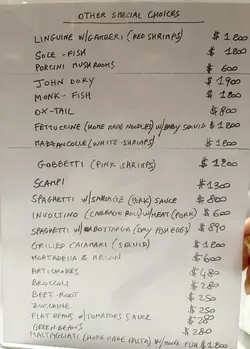 OTHER SPECIAL CHOICES
LINGUINE W/GAMBERI (RED SHRIMPS) $1200
SOLE - FISH $1200
PORCINI MUSHROOMS $600
JOHN DORY $1900
MONK - FISH $1800
OX-TAIL $800
FETTUCCINE (HOME MADE NOODLES) W/BABY SQUID $1200
MAZZANCOLLE (WHITE SHRIMPS) $1800
GOBBETTI (PINK SHRIMPS) $1800
SCAMPI $1300
SPAGHETTI W/SAUSAGE (PORK) SAUCE $800
INVOLTINO (CABBAGE ROLL) W/MEAT (PORK) $600
SPAGHETTI W/BOTTARGA (DRY FISH EGGS) $890
GRILLED CALAMARI (SQUID) $1200
MORTADELLA & MELON $600
ARTICHOKES $480
BROCCOLI $280
BEET-ROOT $250
ZUCCHINE $250
FLAT BEANS W/TOMATOES SAUCE $280
GREEN BEANS $280
MALTAGLIATI (HOME MADE PASTA) W/MONK FISH $1800